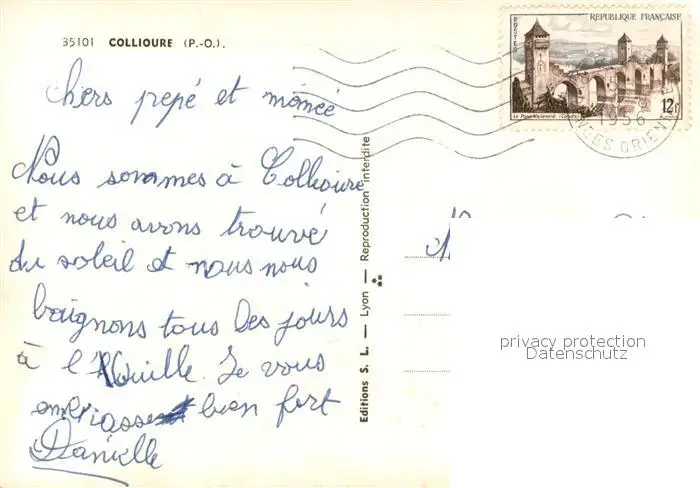 35101 COLLIOURE (P.-O.).
chers pepé et mémée
Nous sommes à Collioure
et nous avons trouvé
du soleil et nous nous
baignons tous les jours
à l'Ouille. Je vous
embrasse bien fort
Danielle
Editions S. L. — Lyon — Reproduction interdite
POSTES
REPUBLIQUE FRANÇAISE
12f
Le Pont Valentré (Cahors)
1956
ORIENT
privacy protection
Datenschutz